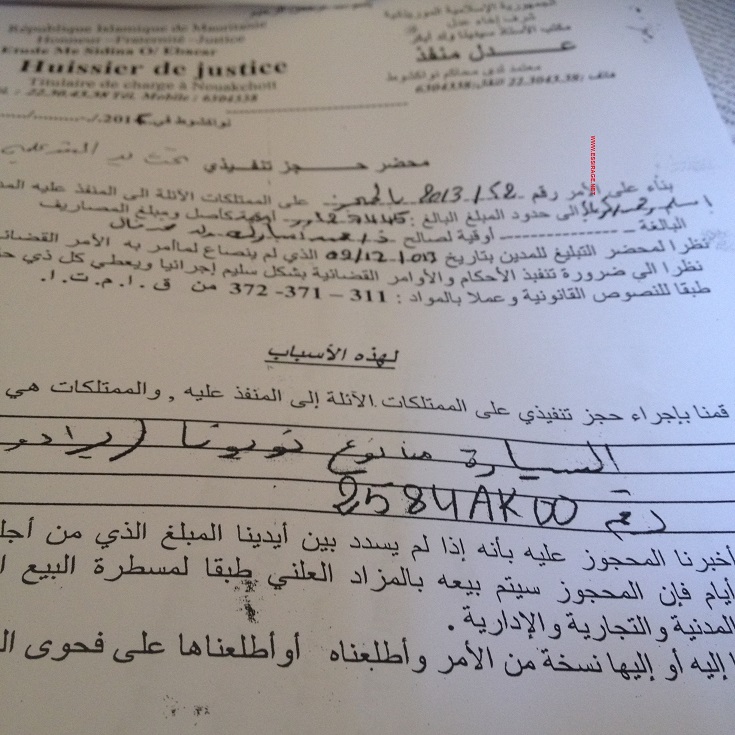 الجمهورية الإسلامية الموريتانية
République Islamique de Mauritanie
شرف إخاء عدل
Honneur - Fraternité - Justice
مكتب الأستاذ سيدينا ولد
Etude Me Sidina O/
عدل منفذ
Huissier de justice
معتمد لدى محاكم نواكشوط
Titulaire de charge à Nouakchott
هاتف: 22.30.43.38 النقال: 6304338
22.30.43.38 Tél. Mobile : 6304338
نواكشوط في
WWW.ESSIRAGE.NET
محضر حجز تنفيذي
بناء على الأمر رقم 52/2013 على الممتلكات الآئلة الى المنفذ عليه
الى حدود المبلغ البالغ: كأصل ومبلغ المصاريف
البالغة - -------------- أوقية لصالح
نظرا لمحضر التبليغ للمدين بتاريخ 09/12/013 الذي لم ينصاع لماأمر به الأمر
نظرا الي ضرورة تنفيذ الأحكام والأوامر القضائية بشكل سليم إجرائيا ويعطي كل ذي
طبقا للنصوص القانونية وعملا بالمواد : 311 – 371- 372 من ق .ا.م.ت.ا.
لهذه الأسباب
قمنا بإجراء حجز تنفيذي على الممتلكات الآئلة إلى المنفذ عليه , والممتلكات هي
السيارة من نوع تويوتا
رقم 2584AK00
أخبرنا المحجوز عليه بأنه إذا لم يسدد بين أيدينا المبلغ الذي من
أيام فإن المحجوز سيتم بيعه بالمزاد العلني طبقا لمسطرة البيع
المدنية والتجارية والإدارية .
إليه أو إليها نسخة من الأمر وأطلعناه أوأطلعناها على فحوى